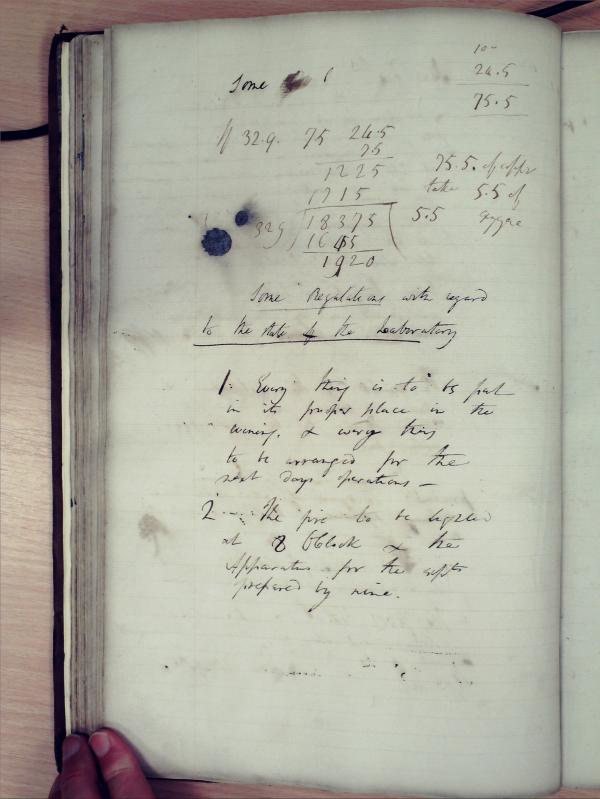 10-
24.5
75.5
Some
If 32.9. 75 24.5
75
1225
1715
75.5. of
take 5.5 of
329 18375 5.5
1645
1920
Some Regulations with regard
to the state of the Laboratory
1. Every thing is to be put
in its proper place in the
evening. & every thing
to be arranged for the
next days operations -
2. The fire to be lighted
at 8 OClock & the
Apparatus for the expts
prepared by nine.